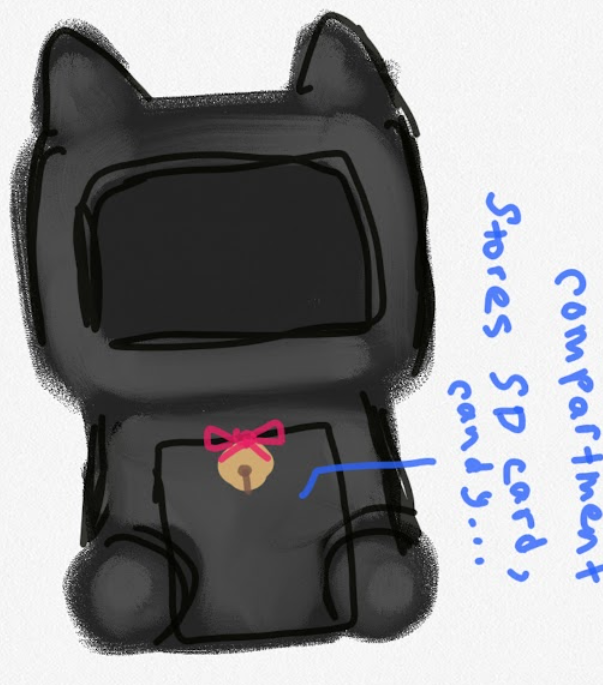 compartment
Stores SD card,
candy...